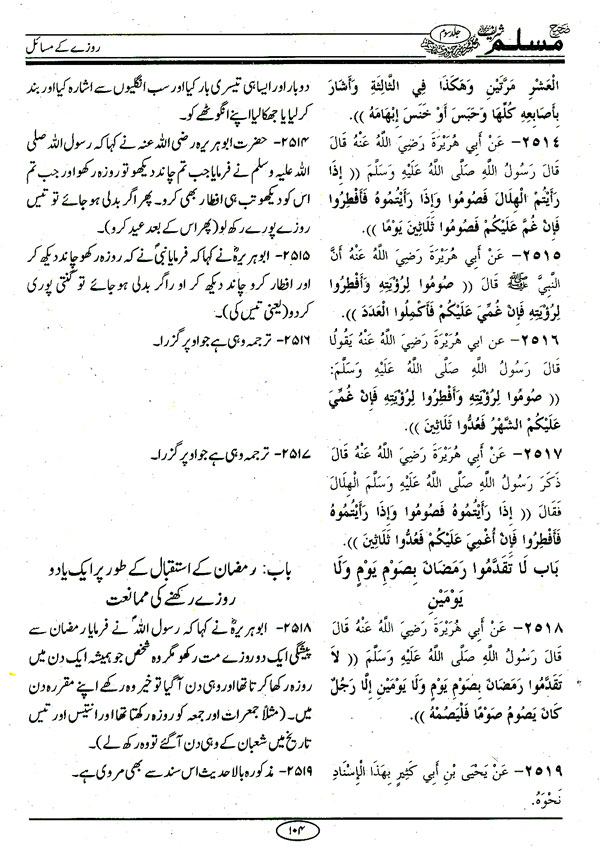 صحیح مسلم شریف
جلد سوم
روزے کے مسائل
الْعَشْرِ مَرَّتَيْنِ وَهَكَذَا فِي الثَّالِثَةِ وَأَشَارَ
بِأَصَابِعِهِ كُلِّهَا وَحَبَسَ أَوْ خَنَسَ إِبْهَامَهُ )).
۲۵۱٤- عَنْ أَبِي هُرَيْرَةَ رَضِيَ اللَّهُ عَنْهُ قَالَ
قَالَ رَسُولُ اللهِ صَلَّى اللَّهُ عَلَيْهِ وَسَلَّمَ (( إِذَا
رَأَيْتُمُ الْهِلَالَ فَصُومُوا وَإِذَا رَأَيْتُمُوهُ فَأَفْطِرُوا
فَإِنْ غُمَّ عَلَيْكُمْ فَصُومُوا ثَلَاثِينَ يَوْمًا )).
۲۵۱۵- عَنْ أَبِي هُرَيْرَةَ رَضِيَ اللَّهُ عَنْهُ أَنَّ
النَّبِيَّ ﷺ قَالَ (( صُومُوا لِرُؤْيَتِهِ وَأَفْطِرُوا
لِرُؤْيَتِهِ فَإِنْ غُمِّيَ عَلَيْكُمْ فَأَكْمِلُوا الْعَدَدَ )).
۲۵۱٦- عن ابي هُرَيْرَةَ رَضِيَ اللَّهُ عَنْهُ يَقُولُا
قَالَ رَسُولُ اللهِ صَلَّى اللَّهُ عَلَيْهِ وَسَلَّمَ:
(( صُومُوا لِرُؤْيَتِهِ وَأَفْطِرُوا لِرُؤْيَتِهِ فَإِنْ غُمِّيَ
عَلَيْكُمْ الشَّهْرُ فَعُدُّوا ثَلَاثِينَ )).
۲۵۱۷- عَنْ أَبِي هُرَيْرَةَ رَضِيَ اللَّهُ عَنْهُ قَالَ
ذَكَرَ رَسُولُ اللهِ صَلَّى اللَّهُ عَلَيْهِ وَسَلَّمَ الْهِلَالَ
فَقَالَ (( إِذَا رَأَيْتُمُوهُ فَصُومُوا وَإِذَا رَأَيْتُمُوهُ
فَأَفْطِرُوا فَإِنْ أُغْمِيَ عَلَيْكُمْ فَعُدُّوا ثَلَاثِينَ )).
بَاب لَا تَقَدَّمُوا رَمَضَانَ بِصَوْمِ يَوْمٍ وَلَا
يَوْمَيْنِ
۲۵۱۸- عَنْ أَبِي هُرَيْرَةَ رَضِيَ اللَّهُ عَنْهُ قَالَ
قَالَ رَسُولُ اللهِ صَلَّى اللَّهُ عَلَيْهِ وَسَلَّمَ (( لَا
تَقَدَّمُوا رَمَضَانَ بِصَوْمِ يَوْمٍ وَلَا يَوْمَيْنِ إِلَّا رَجُلٌ
كَانَ يَصُومُ صَوْمًا فَلْيَصُمْهُ )).
۲۵۱۹- عَنْ يَحْيَى بْنِ أَبِي كَثِيرٍ بِهَذَا الْإِسْنَادِ
نَحْوَهُ.
دوبار اور ایسا ہی تیسری بار کیا اور سب انگلیوں سے اشارہ کیا اور بند
کر لیا یا جھکالیا اپنے انگوٹھے کو۔
۲۵۱۴- حضرت ابوہریرہ رضی اللہ عنہ نے کہا کہ رسول اللہ صلی
اللہ علیہ وسلم نے فرمایا جب تم چاند دیکھو تو روزہ رکھو اور جب تم
اس کو دیکھو تب ہی افطار بھی کرو۔ پھر اگر بدلی ہو جائے تو تیس
روزے پورے رکھ لو (پھر اس کے بعد عید کرو)۔
۲۵۱۵- ابوہریرہؓ نے کہا کہ فرمایا نبیؐ نے کہ روزہ رکھو چاند دیکھ کر
اور افطار کرو چاند دیکھ کر او راگر بدلی ہو جائے تو گنتی پوری
کردو (یعنی تیس کی)۔
۲۵۱۶- ترجمہ وہی ہے جو اوپر گزرا۔
۲۵۱۷- ترجمہ وہی ہے جو اوپر گزرا۔
باب: رمضان کے استقبال کے طور پر ایک یا دو
روزے رکھنے کی ممانعت
۲۵۱۸- ابوہریرہؓ نے کہا کہ رسول اللہؐ نے فرمایا رمضان سے
پیشگی ایک دو روزے مت رکھو مگر وہ شخص جو ہمیشہ ایک دن میں
روزہ رکھا کرتا تھا اور وہی دن آگیا تو خیر وہ رکھے اپنے مقررہ دن
میں۔ (مثلاً جمعرات اور جمعہ کو روزہ رکھتا تھا اور انتیس اور تیس
تاریخ میں شعبان کے وہی دن آگئے تو وہ رکھ لے)۔
۲۵۱۹- مذکورہ بالا حدیث اس سند سے بھی مروی ہے۔
۱۰۴